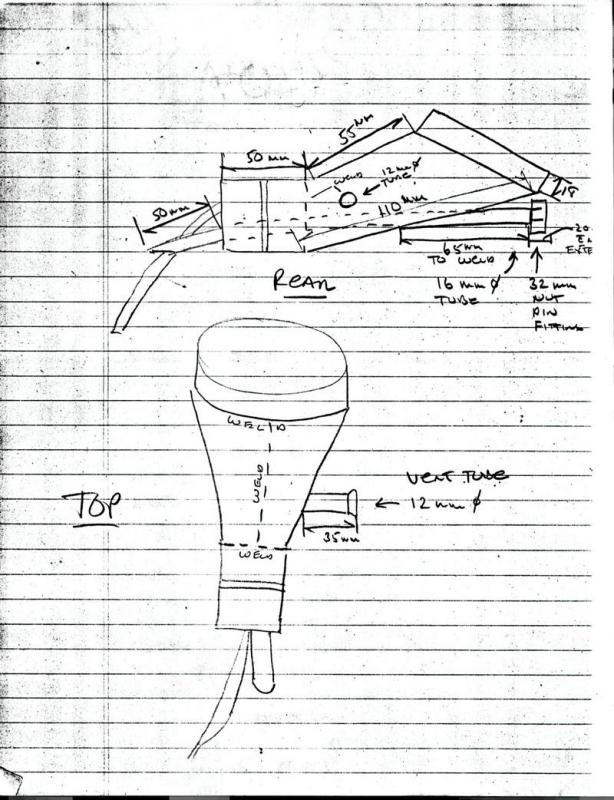 55mm
50 mm
WELD
12mm Ø
TUBE
18
50mm
110mm
20
65mm
TO WELD
REAR
16 mm Ø
TUBE
32 mm
NUT
DIN
FITTING
WELD
WELD
VENT TUBE
12 mm Ø
TOP
35mm
WELD